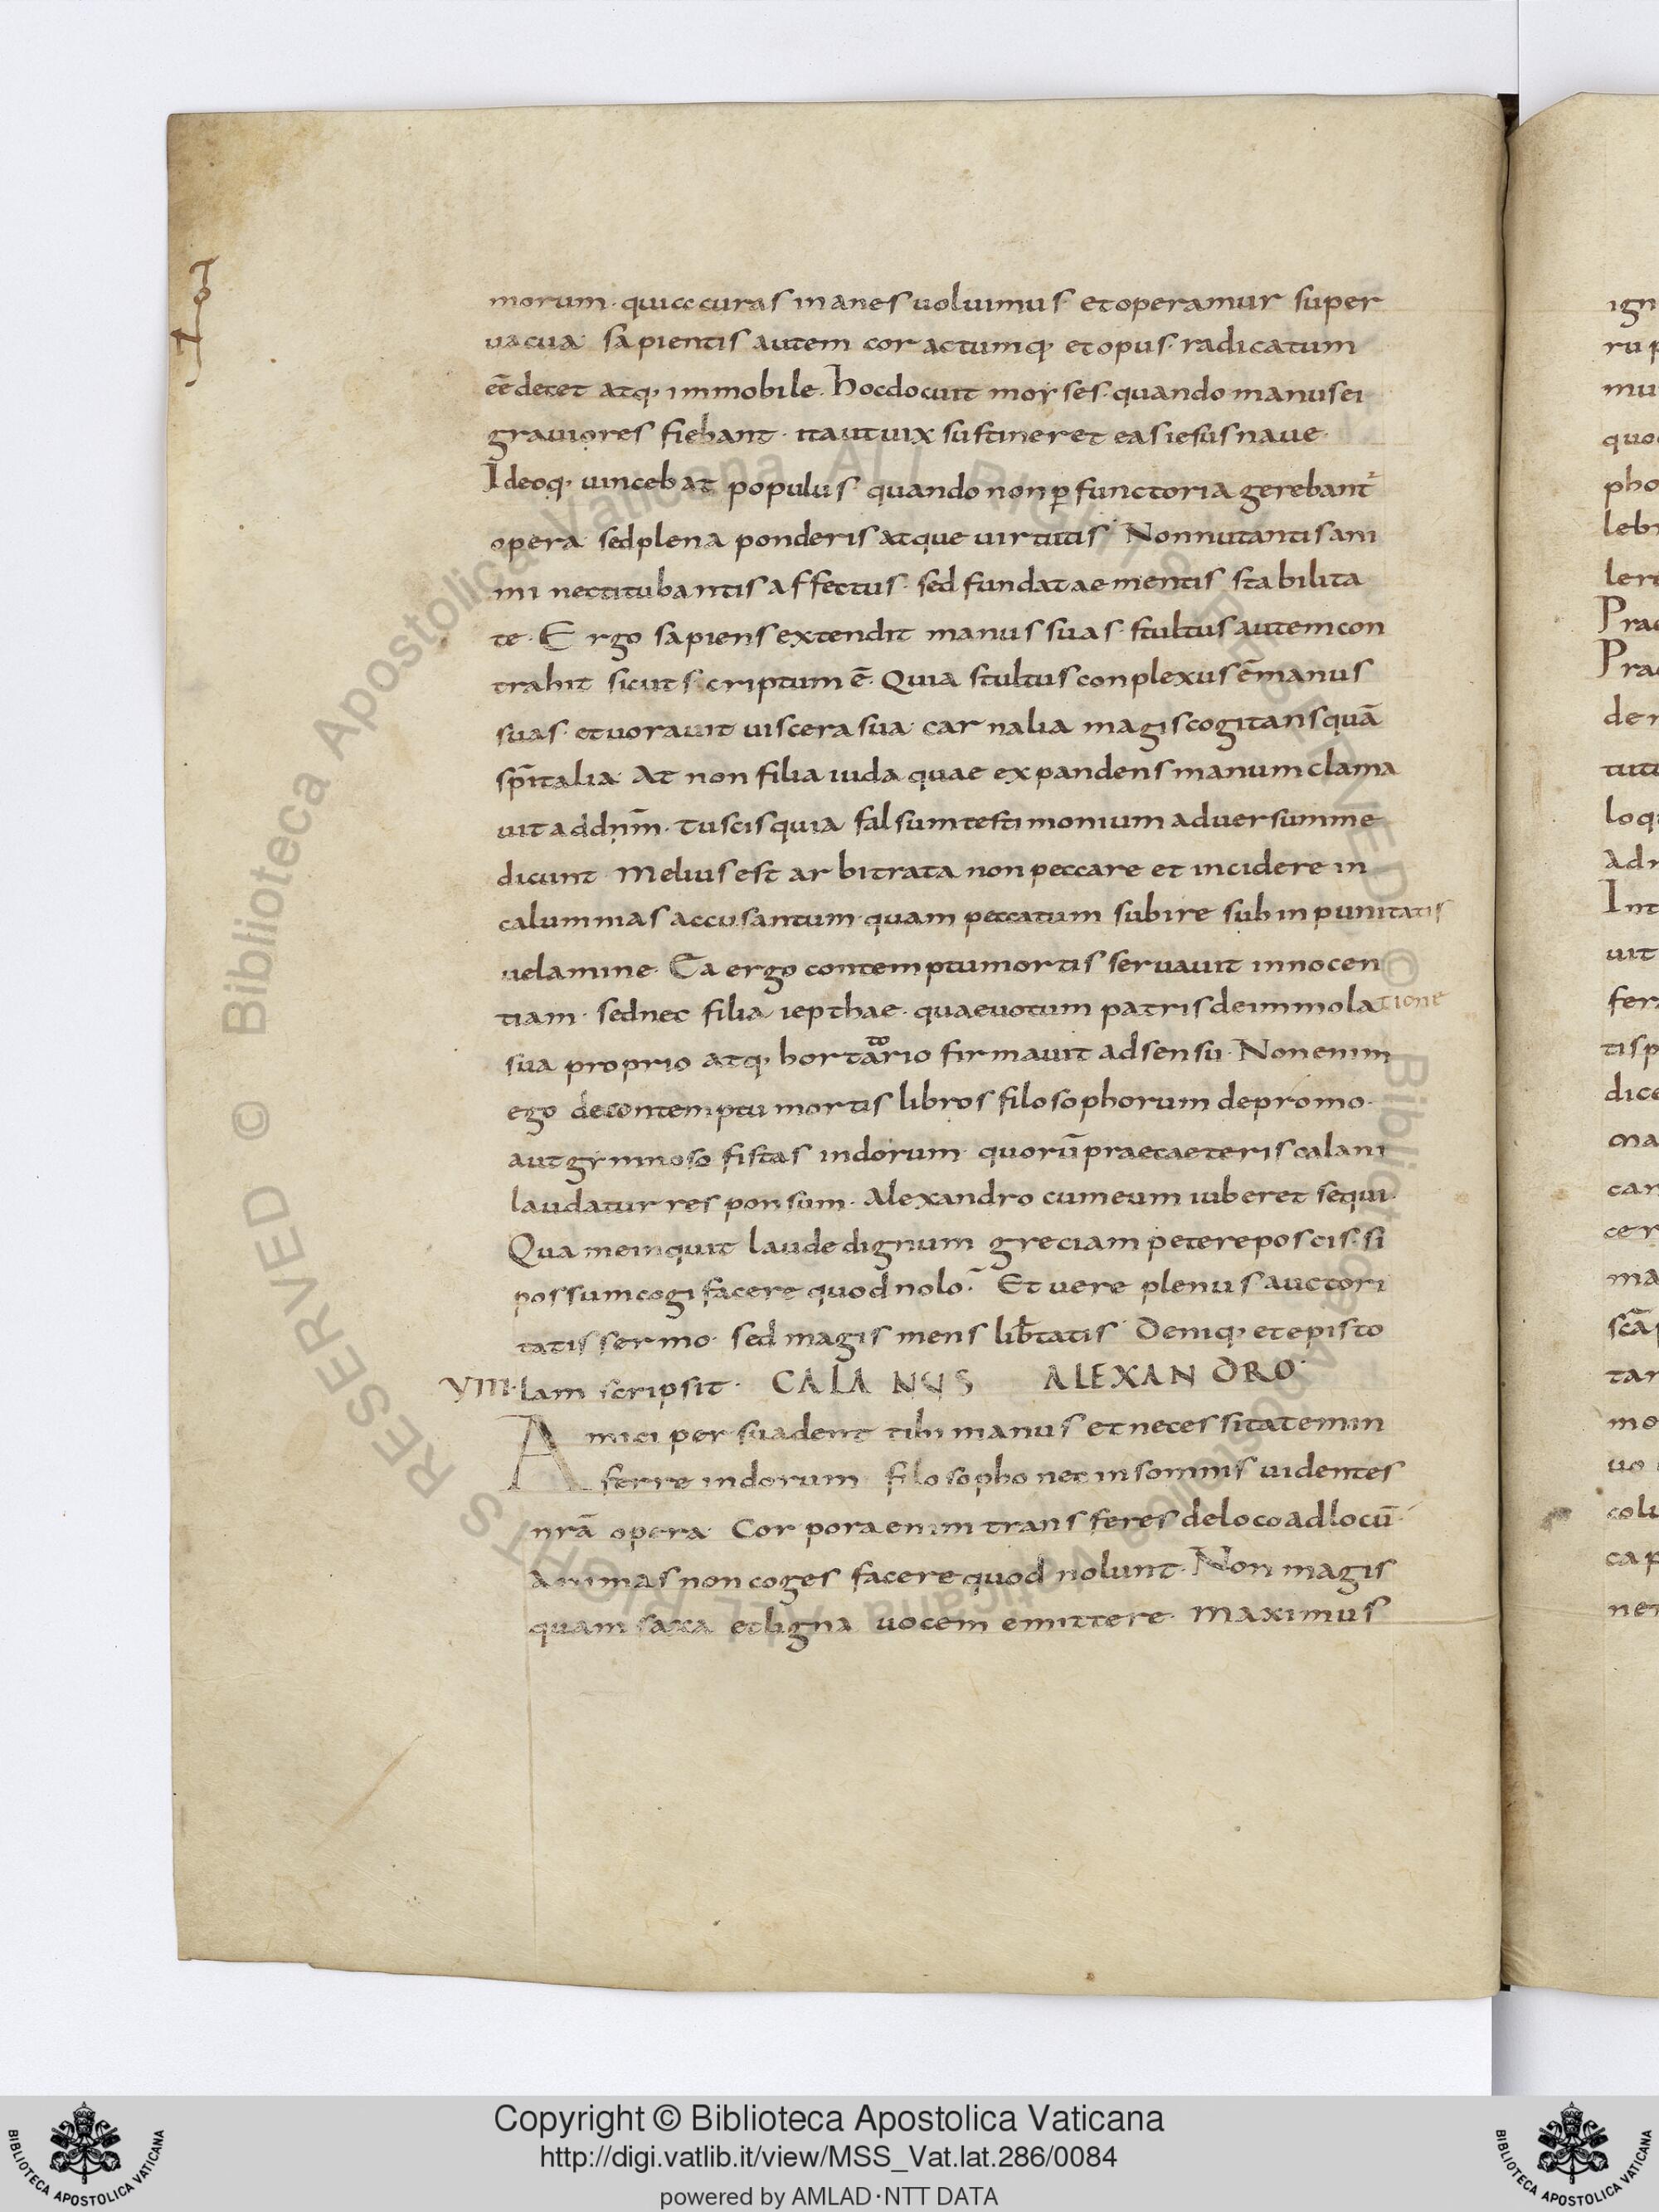 morum· qui cc curas inanes uoluimus et operamur super
uacua· sapientis autem cor actumq; et opus· radicatum
eē decet atq; immobile. hoc docuit moyses· quando manus ei
grauiores fiebant· ita ut uix sustineret eas iesus naue·
Ideoq; uincebat populus quando non ꝑfunctoria gerebant᷑
opera· sed plena ponderis atque uirtutis· Non nutantis ani
mi nec titubantis affectus· sed fundatae mentis stabilita
te· Ergo sapiens extendit manus suas· stultus autem con
trahit sicut scriptum ē· Quia stultus conplexus ē manus
suas· et uorauit uiscera sua· carnalia magis cogitans quā
sp̄italia· At non filia iuda quae expandens manum clama
uit ad dn̄m· tu scis quia falsum testimonium aduersum me
dicunt· Melius est arbitrata non peccare et incidere in
calumnias accusantum· quam peccatum subire sub inpunitatis
uelamine· Ea ergo contemptu mortis seruauit innocen
tiam· sed nec filia iepthae· quae uotum patris de immolatione
sua proprio atq; hortatorio firmauit adsensu· Non enim
ego de contemptu mortis libros filosophorum depromo·
aut gymnosofistas indorum· quorū prae caeteris calani
laudatur responsum· Alexandro cum eum iuberet sequi·
Qua me inquit laude dignum greciam petere poscis· si
possum cogi facere quod nolo· Et uere plenus auctori
tatis sermo· sed magis mens lib̄tatis· Deniq; et episto
VIII· lam scripsit· CALANUS ALEXANDRO·
Amici persuadent tibi manus et necessitatem in
ferre indorum filosopho nec in somnis uidentes
nrā opera· Corpora enim transferes de loco ad locū·
animas non coges facere quod nolunt· Non magis
quam saxa et ligna uocem emittere· Maximus
Copyright © Biblioteca Apostolica Vaticana
http://digi.vatlib.it/view/MSS_Vat.lat.286/0084
powered by AMLAD·NTT DATA